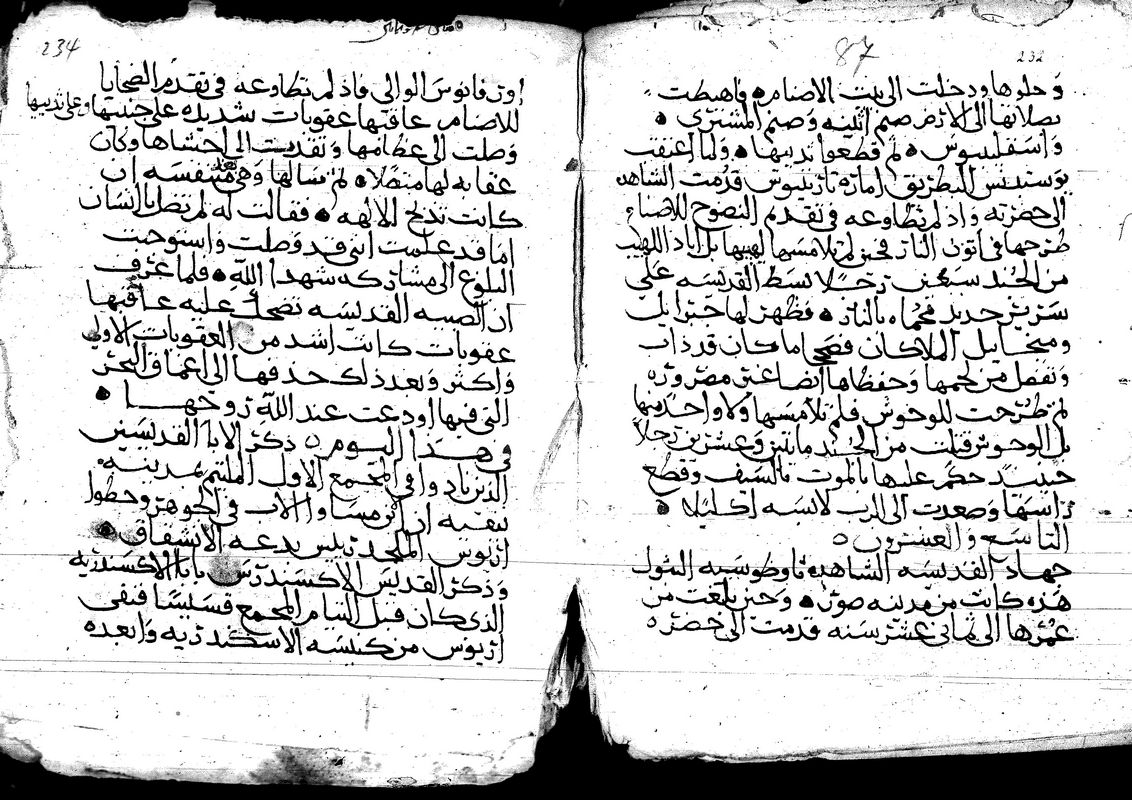 87
232
وحلوها ودخلت الى بيت الاصنام فاهبطت
بصلاتها الى الارض صنم اثينه وصنم المشتري
واسقليبيوس ثم قطعوا ثدييها ولما اعتقب
البطريق امارة قدمت الشاهده
الى حضرته واذ لم تطاوعه في تقديم النضوح للاصنام
طرحها في اتون النار فحين لم تلامسها لهيبها بل اباد اللهيب
من الجند سبعين رجلا بسط القديسه على
سرير حديد محماه بالنار فظهر لها جبرايل
وميخايل الملاكان فصحا ما كان قد ذاب
وتفصل من لحمها وحفظاها ايضا غير مضروره
ثم طرحت للوحوش فلم تلامسها ولا واحد منها
بل الوحوش قتلت من الجند مايتين وعشرين رجلا
حينيد حكم عليها بالموت بالسيف وقطع
راسها وصعدت الى الرب لابسه اكليلا
التاسع والعشرون
جهاد القديسه الشاهده ثاوطوسيه البتول
هذه كانت من مدينه صور وحين بلغت من
عمرها الى ثماني عشر سنه قدمت الى حضرة
234
اوربانوس الوالي فاذ لم تطاوعه في تقدم الضحايا
للاصنام عاقبها عقوبات شديده على جنبيها وعلى ثدييها
وصلت الى عظامها ونفدت الى احشاها وكان
عقابه لها متصلا ثم سالها وهي متنفسه ان
كانت تذبح للالهه فقالت له لم تضل يا انسان
اما قد علمت انني قد وصلت واستوجبت
البلوغ الى مشاركه شهدا الله فلما عرف
ان الصبيه القديسه تضحك عليه عاقبها
عقوبات كانت اشد من العقوبات الاولى
واكثر وبعد ذلك حدفها الى اعماق البحر
التي فيها اودعت عند الله روحها
في هذا اليوم ذكر الابا القديسين
الذين نادوا في المجمع الاول الملتم بمدينه
نيقيه ان الابن مساو الاب في الجوهر وحطوا
اريوس الملحد ريس بدعه الانشقاق
وذكر القديس الاكسندرس بابا الاكسندريه
الذي كان قبل التيام المجمع قسيسا فنفى
اريوس من كنيسه الاسكندريه وابعده